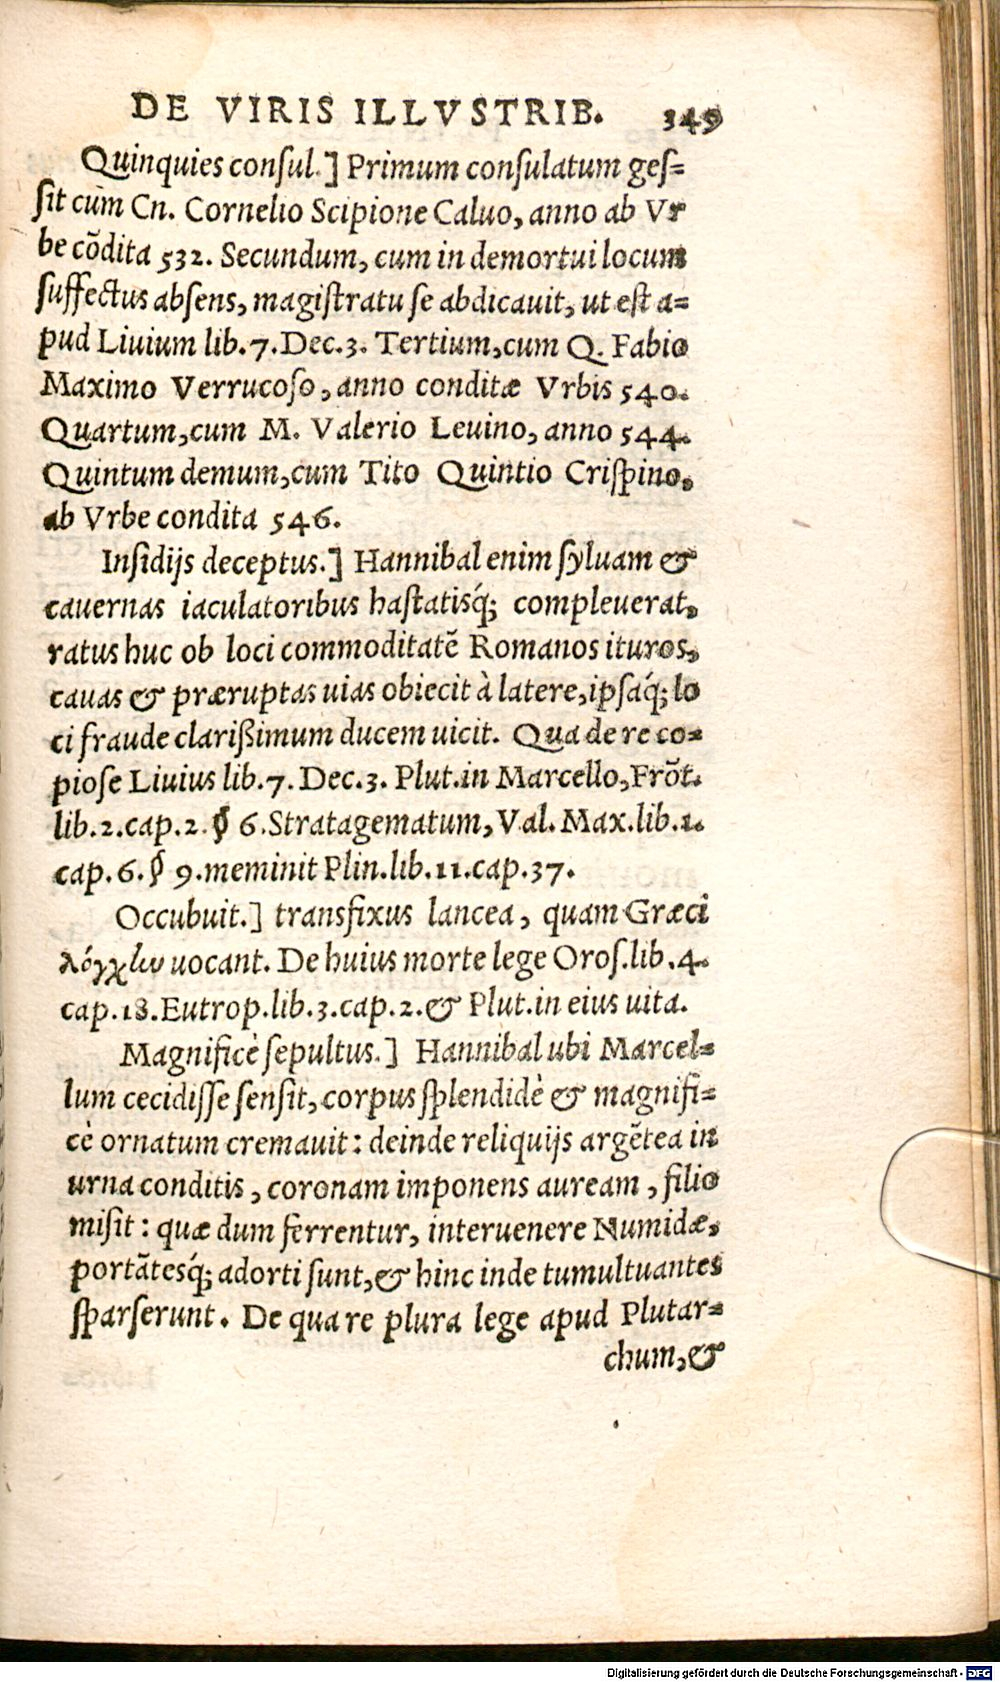 DE VIRIS ILLVSTRIB. 349
Quinquies conſul.] Primum conſulatum geſ-
ſit cùm Cn. Cornelio Scipione Caluo, anno ab Vr
be cõdita 532. Secundum, cum in demortui locum
ſuffectus abſens, magiſtratu ſe abdicauit, ut eſt a-
pud Liuium lib.7.Dec.3. Tertium,cum Q. Fabio
Maximo Verrucoſo, anno conditæ Vrbis 540.
Quartum,cum M. Valerio Leuino, anno 544.
Quintum demum,cum Tito Quintio Criſpino,
ab Vrbe condita 546.
Inſidijs deceptus.] Hannibal enim ſyluam &
cauernas iaculatoribus haſtatisq́; compleuerat,
ratus huc ob loci commoditatẽ Romanos ituros,
cauas & præruptas uias obiecit à latere,ipſaq́; lo
ci fraude clarißimum ducem uicit. Qua de re co-
pioſe Liuius lib.7. Dec.3. Plut.in Marcello,Frõt.
lib.2.cap.2.§ 6.Stratagematum,Val.Max.lib.1.
cap.6.§ 9.meminit Plin.lib.11.cap.37.
Occubuit.] transfixus lancea, quam Græci
λόγχην uocant. De huius morte lege Oroſ.lib.4.
cap.18.Eutrop.lib.3.cap.2.& Plut.in eius uita.
Magnificè ſepultus.] Hannibal ubi Marcel-
lum cecidiſſe ſenſit, corpus ſplendidè & magnifi-
cè ornatum cremauit: deinde reliquijs argẽtea in
urna conditis, coronam imponens auream, filio
miſit: quæ dum ferrentur, interuenere Numidæ,
portãtesq́; adorti ſunt,& hinc inde tumultuantes
ſparſerunt. De qua re plura lege apud Plutar-
chum,&
Digitalisierung gefördert durch die Deutsche Forschungsgemeinschaft - DFG